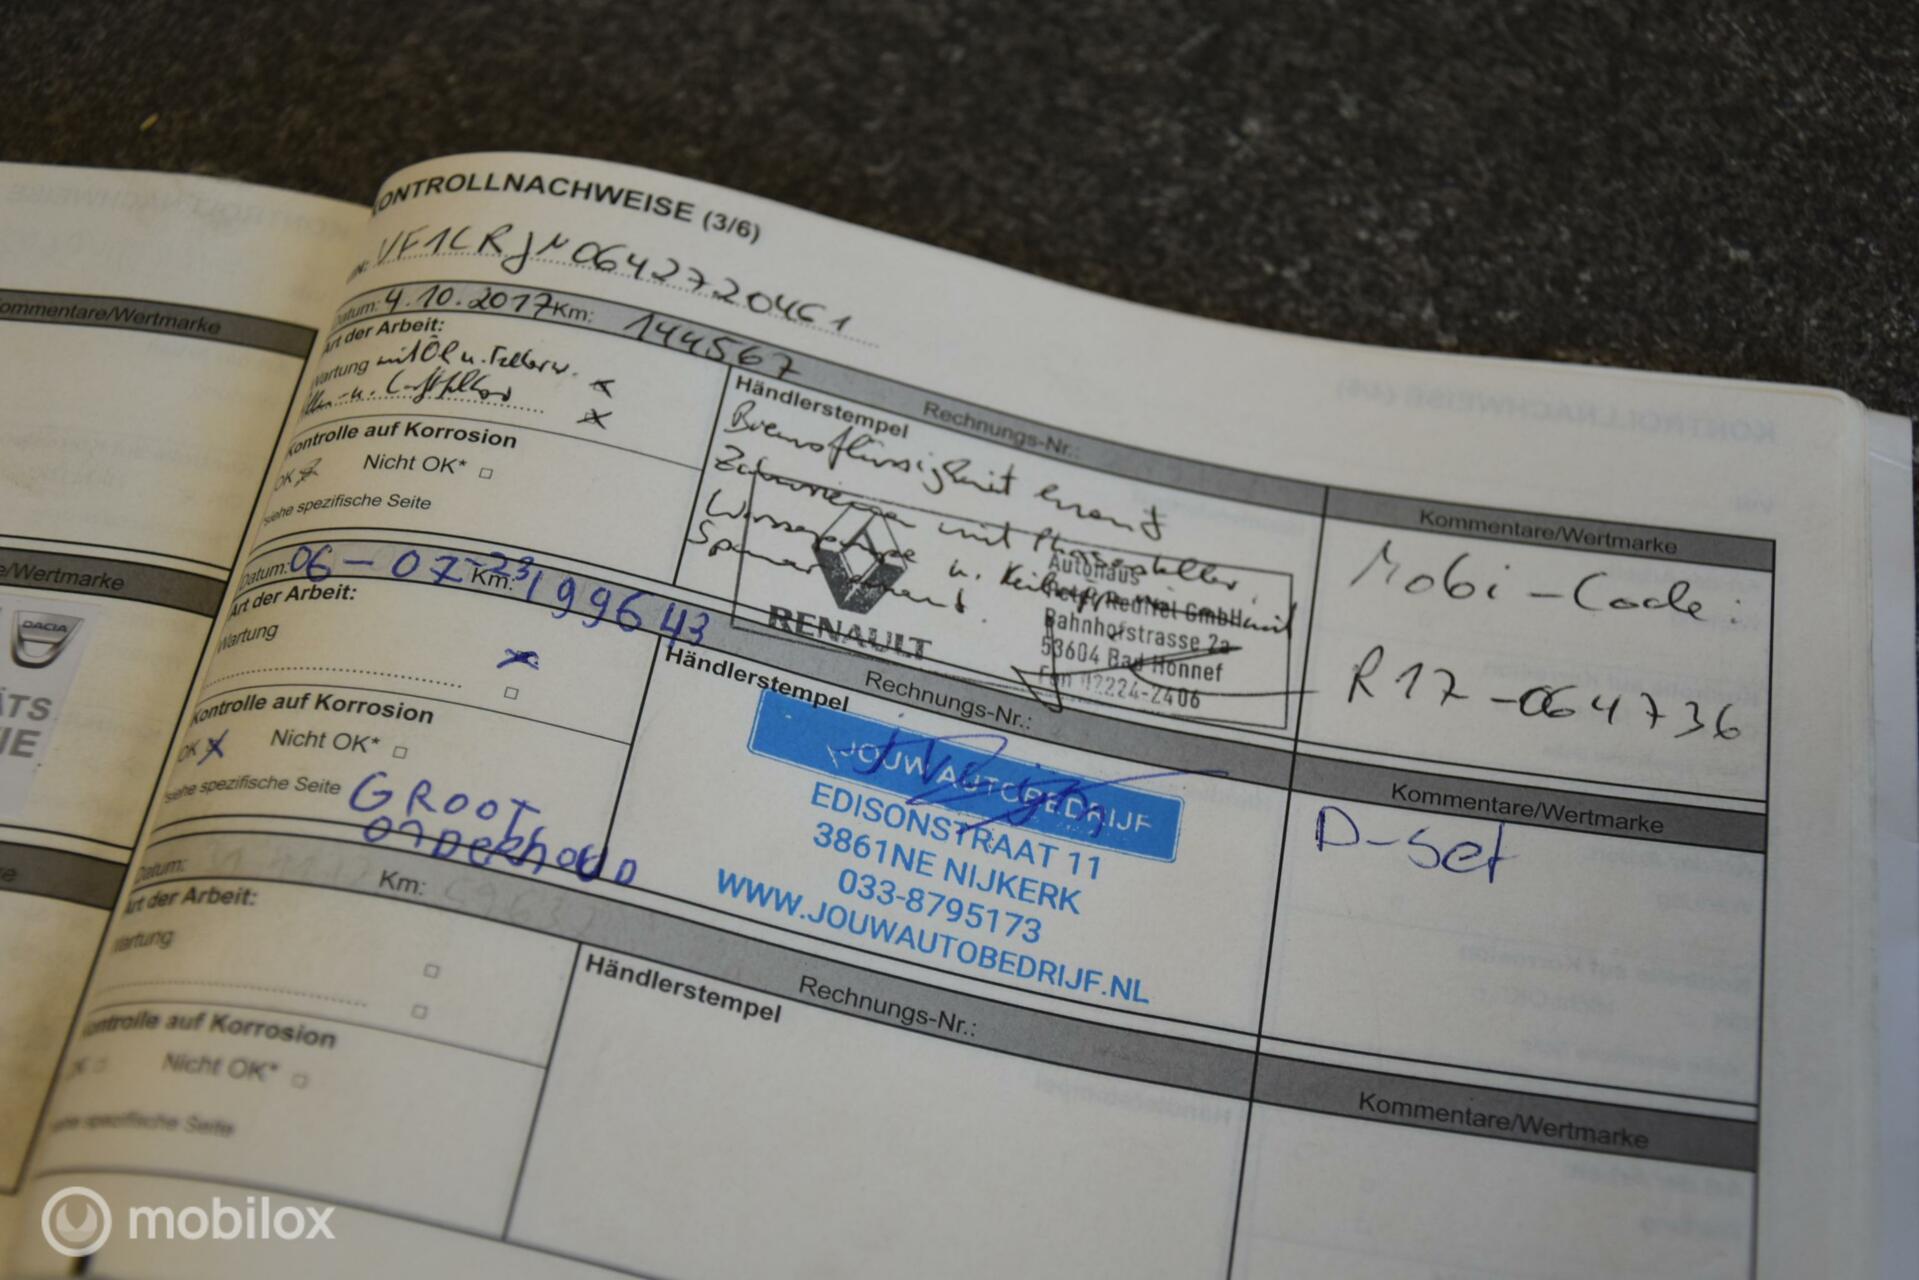 KONTROLLNACHWEISE (3/6)
Datum: 4.10.2017 Km: 144567
Art der Arbeit:
Wartung mit Öl u.
Kontrolle auf Korrosion
OK Nicht OK*
siehe spezifische Seite
Rechnungs-Nr.:
Händlerstempel
Bremsflüssigkeit ersetzt
Zahnriemen mit Phasensteller
Wasserpumpe u.
RENAULT
Autohaus
GmbH
Bahnhofstrasse 2a
53604 Bad Honnef
Fon 02224-2406
Kommentare/Wertmarke
Mobi-Code:
R17-064736
Datum: 06-07-23 Km: 199643
Art der Arbeit:
Wartung
Kontrolle auf Korrosion
OK Nicht OK*
siehe spezifische Seite
GROOT
ONDERHOUD
Rechnungs-Nr.:
Händlerstempel
JOUW AUTOBEDRIJF
EDISONSTRAAT 11
3861NE NIJKERK
033-8795173
WWW.JOUWAUTOBEDRIJF.NL
Kommentare/Wertmarke
D-Set
Datum: Km:
Art der Arbeit:
Wartung
Kontrolle auf Korrosion
OK Nicht OK*
siehe spezifische Seite
Rechnungs-Nr.:
Händlerstempel
Kommentare/Wertmarke
Kommentare/Wertmarke
/Wertmarke
DACIA
mobilox